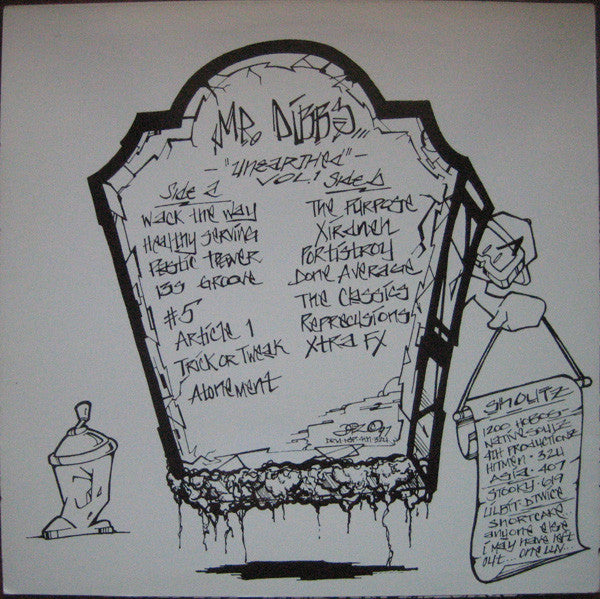 Mr. Dibbs...
- "unearthed" -
VOL. 1
Side
wack the way
Healthy serving
Plastic
135 Groove
#5
Article 1
Trick or Tweak
Atonement
Side
The Purpose
Xirdneh
Portistroy
Done Average
The Classics
Reprecusions
Xtra Fx
Shoutz
1200 Hobos
Native Soulz
4th Productionz
Hitmen · 324
Asia · 407
Stooky · 619
Lil Bit · DTwice
Shortcake...
anyone else
I may have left
out... one luv...